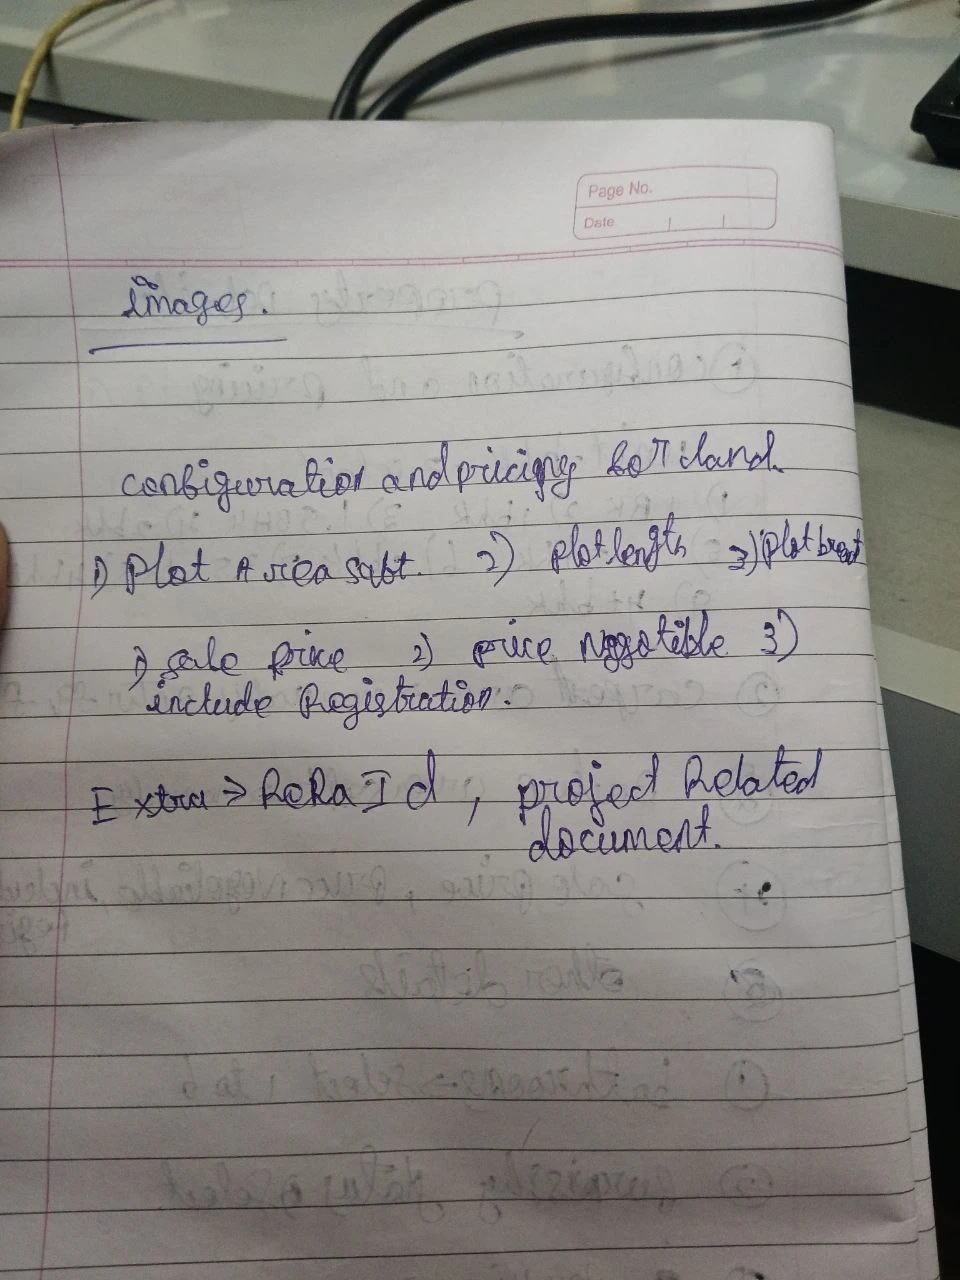 Page No.
Date
images.
configuration and pricing for land.
1) Plot Area saft. 2) plot length 3) plot breat
1) sale price 2) price Nggotible 3)
include Registration.
Extra => ReRa Id, project Related
document.